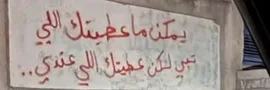 يمكن ما عطيتك اللي
تبي لكن عطيتك اللي عندي..